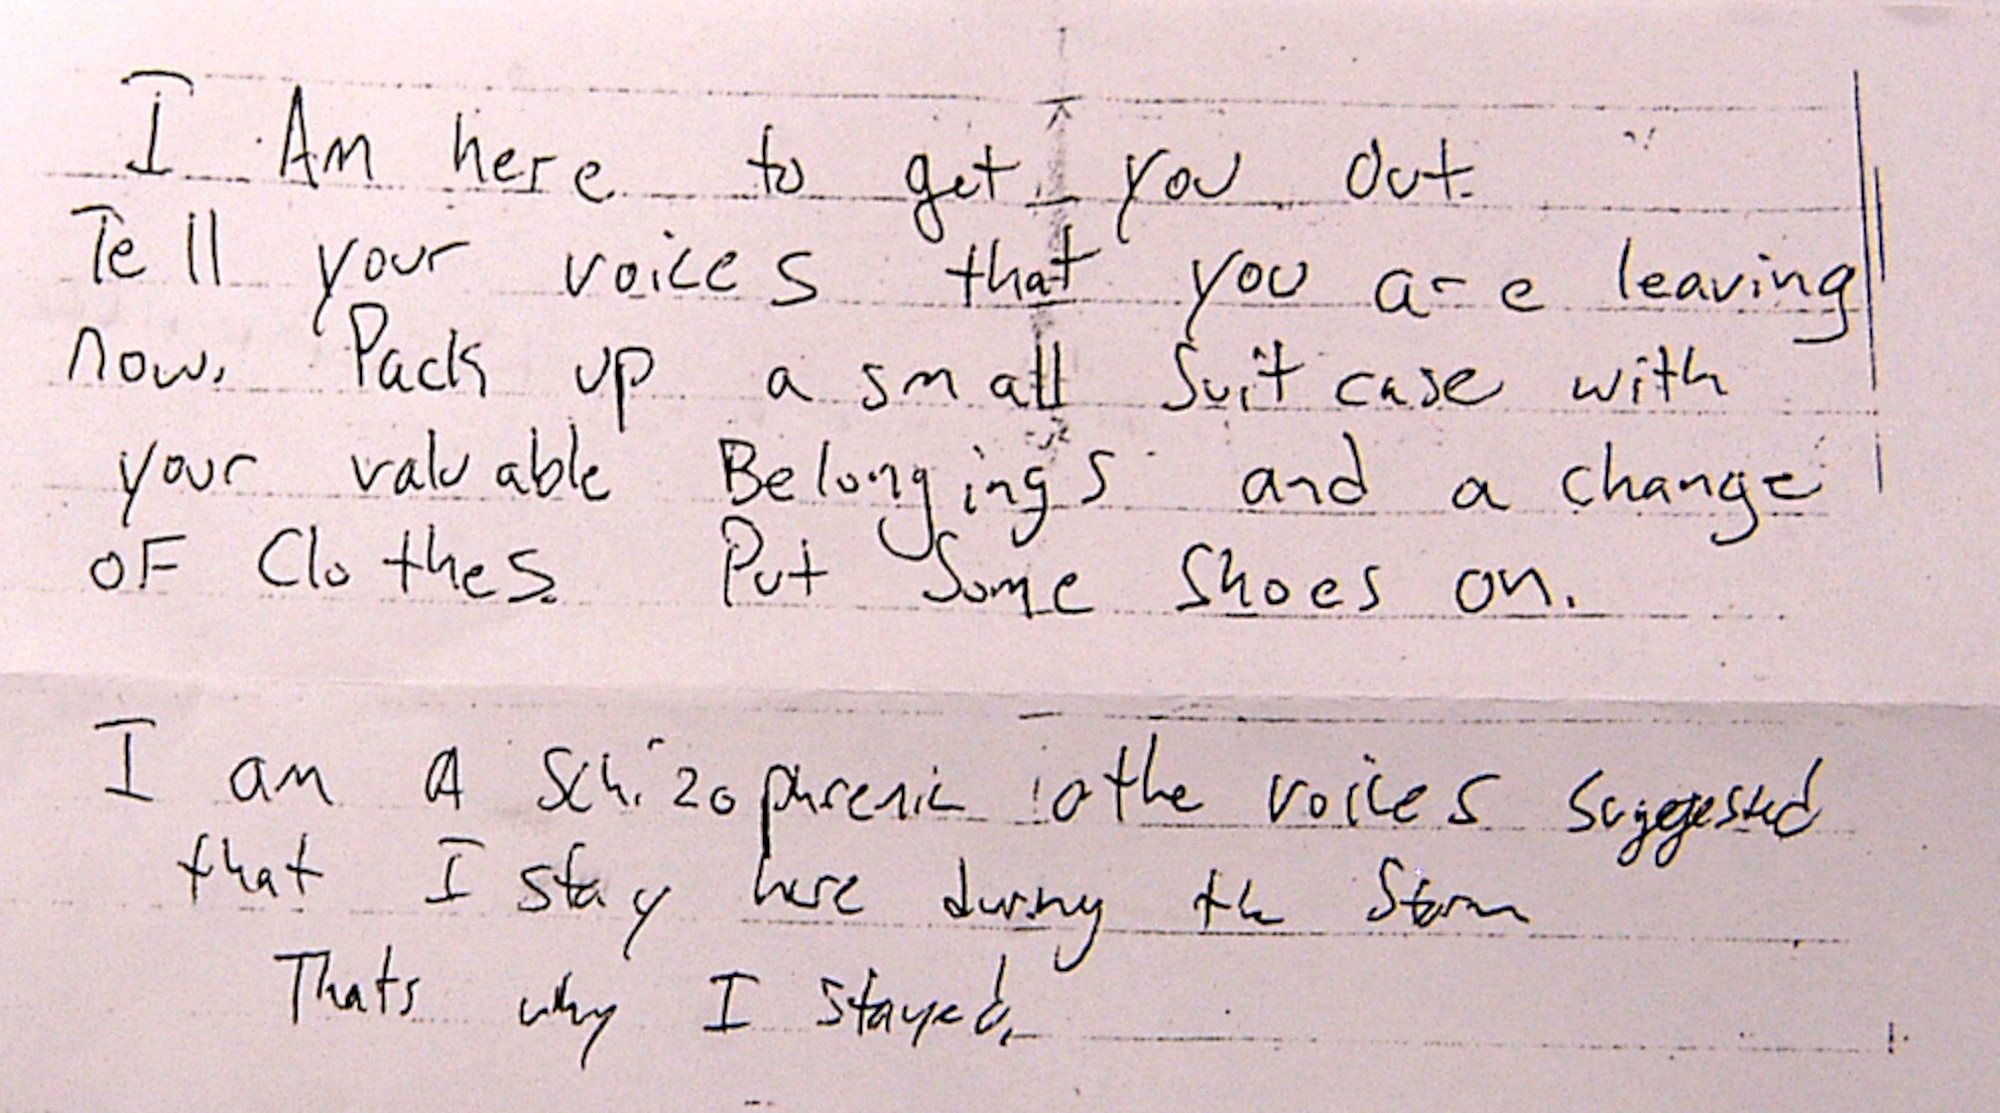 I Am here to get you out.
Tell your voices that you are leaving
now. Pack up a small suitcase with
your valuable Belongings and a change
OF Clothes. Put Some Shoes on.
I am A Schizophrenic the voices suggested
that I stay here during the Storm
Thats why I stayed.